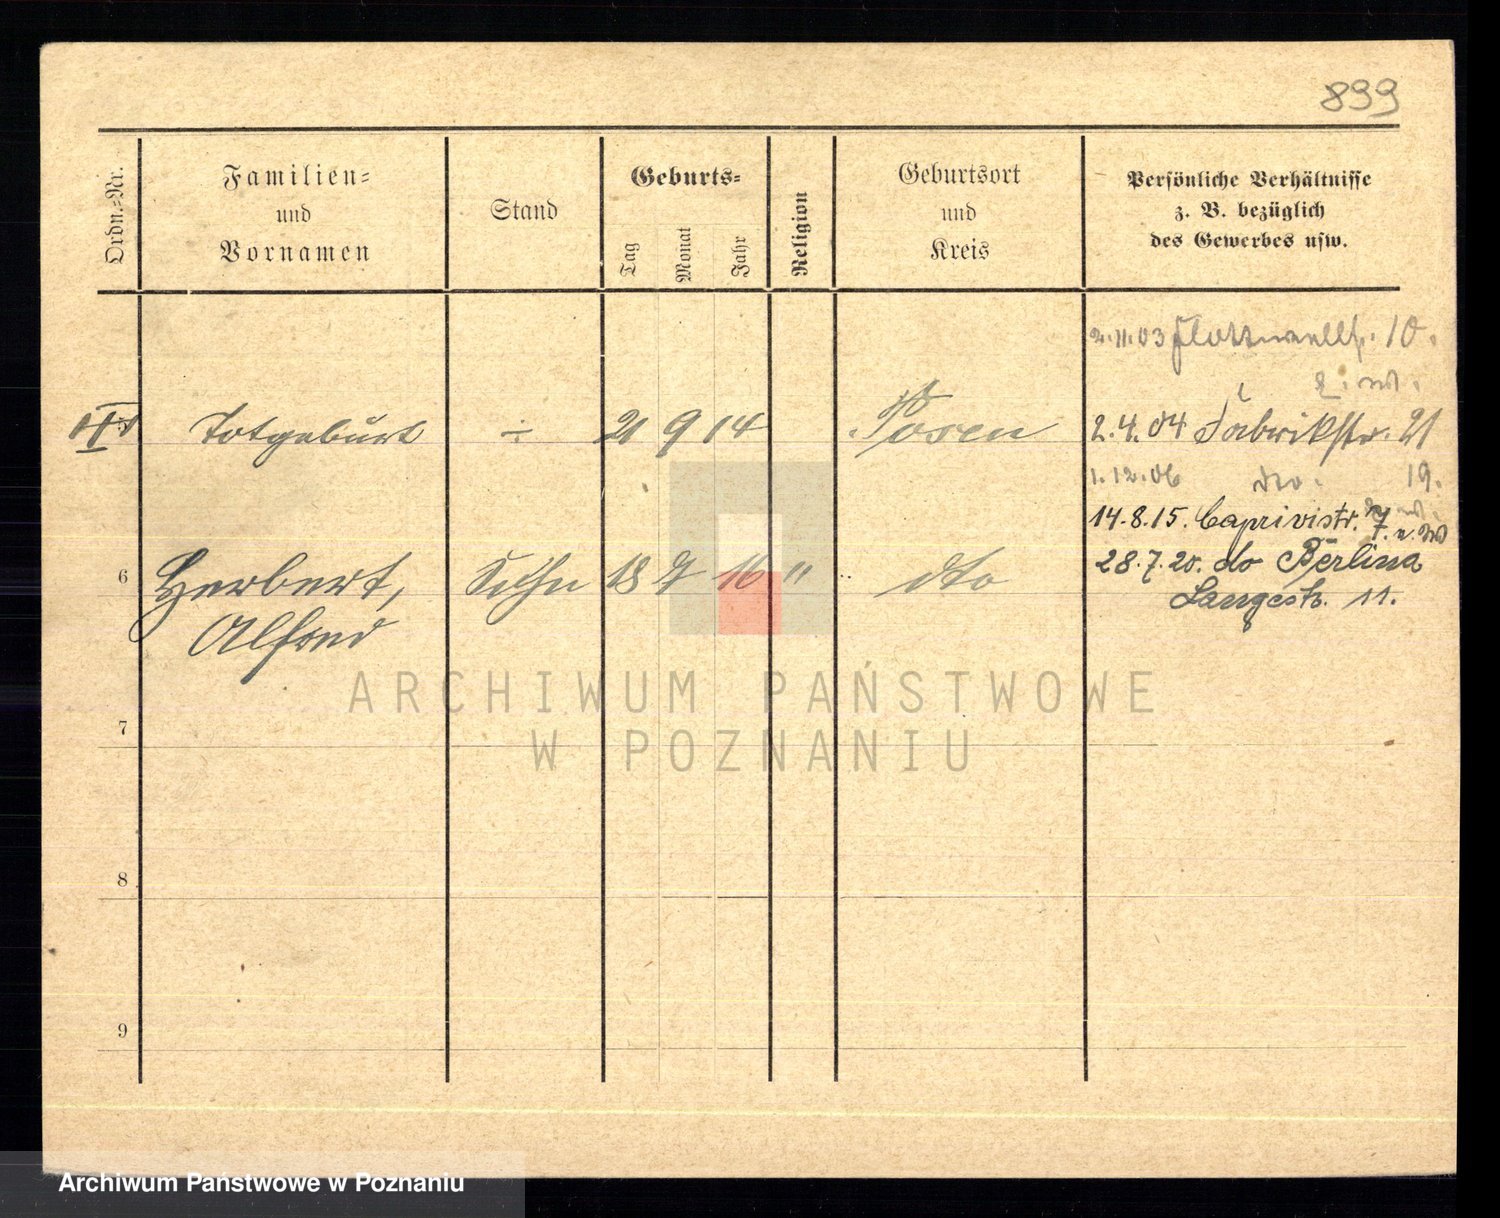 899
Ordn.-Nr.
Familien-
und
Vornamen
Stand
Geburts-
Tag
Monat
Jahr
Religion
Geburtsort
und
Kreis
Persönliche Verhältnisse
z. B. bezüglich
des Gewerbes usw.
2.11.03 Flottwellstr. 10.
Totgeburt ÷ 21 9 14 Posen
2.4.04 Fabrikstr. 21
1.12.06 dto. 19.
14.8.15. Caprivistr. 7
6 Herbert, Sohn 18 7 16 " dto
Alfons
28.7.20. do Berlina
Langestr. 11.
7
8
9
ARCHIWUM PAŃSTWOWE
W POZNANIU
Archiwum Państwowe w Poznaniu